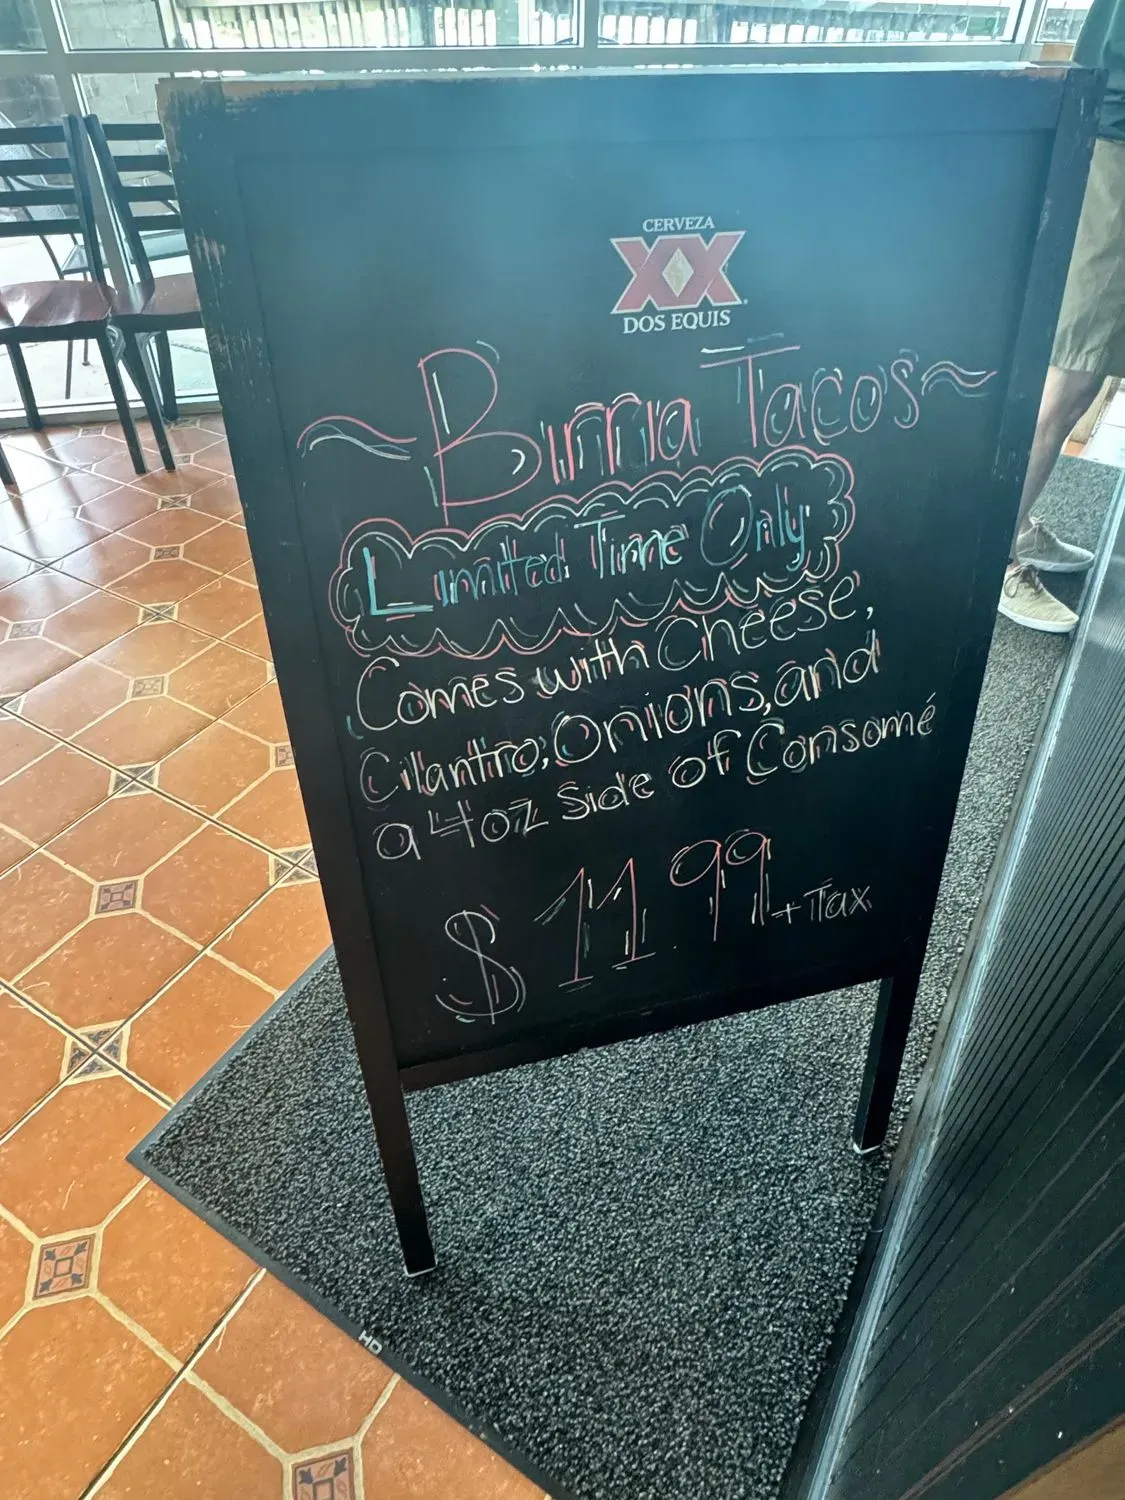 CERVEZA
XX
DOS EQUIS
~Birria Tacos~
Limited Time Only
Comes with Cheese,
Cilantro, Onions, and
a 4oz Side of Consomé
$11.99 + Tax
MD